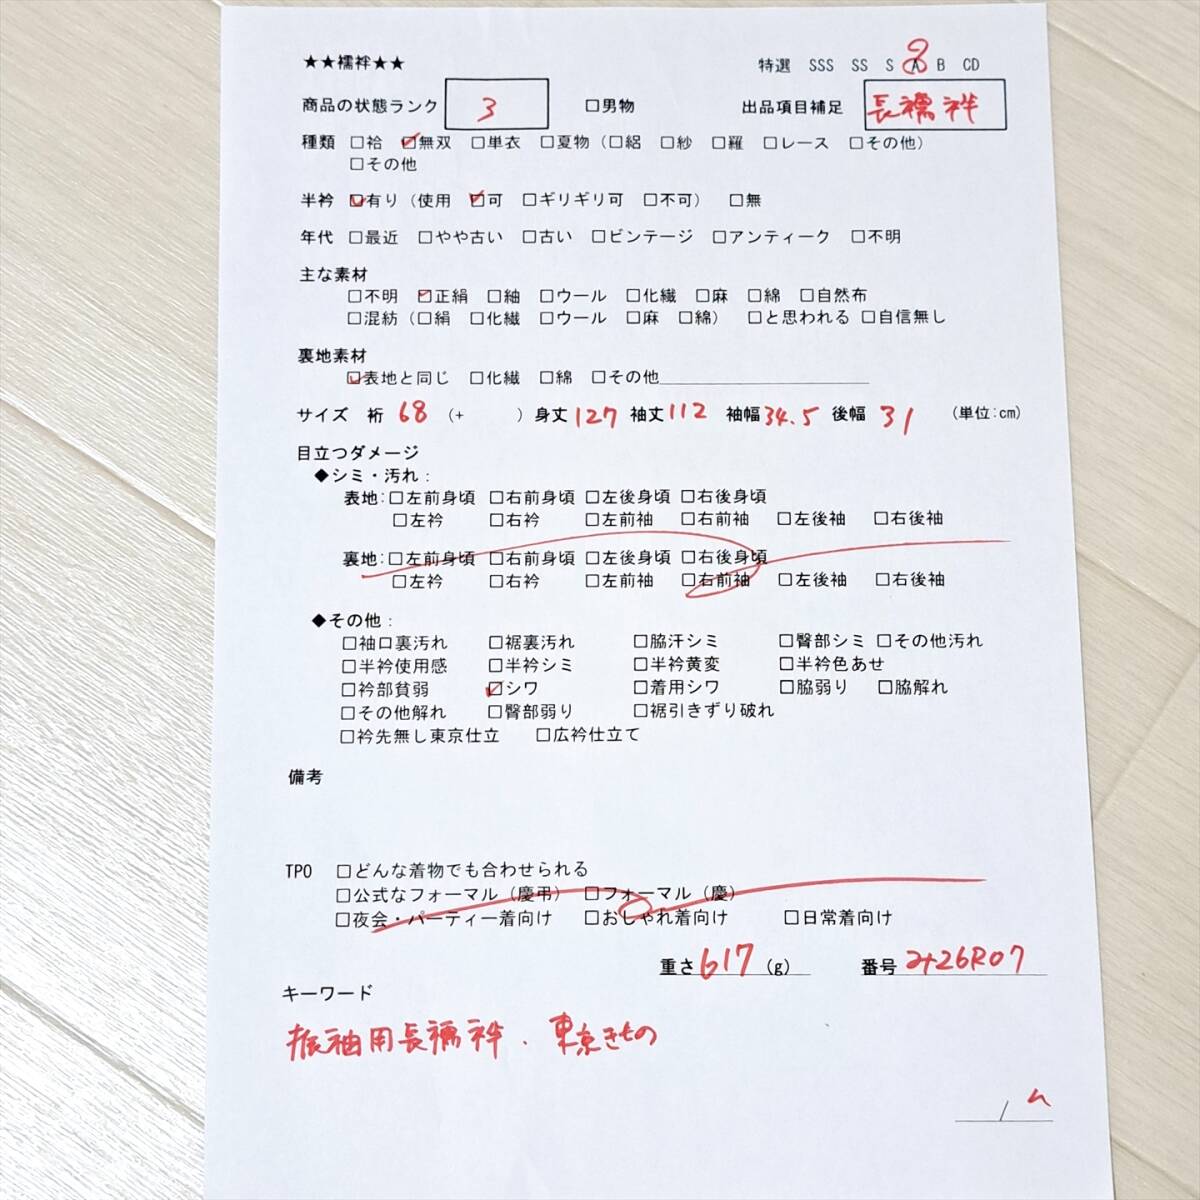 ★★襦袢★★
特選 SSS SS S A B CD
商品の状態ランク 3 □男物 出品項目補足 長襦袢
種類 □袷 ☑無双 □単衣 □夏物（□絽 □紗 □羅 □レース □その他）
□その他
半衿 ☑有り（使用 ☑可 □ギリギリ可 □不可） □無
年代 □最近 □やや古い □古い □ビンテージ □アンティーク □不明
主な素材
□不明 ☑正絹 □紬 □ウール □化繊 □麻 □綿 □自然布
□混紡（□絹 □化繊 □ウール □麻 □綿） □と思われる □自信無し
裏地素材
☑表地と同じ □化繊 □綿 □その他
サイズ 裄 68 （+ ）身丈 127 袖丈 112 袖幅 34.5 後幅 31 （単位:cm）
目立つダメージ
◆シミ・汚れ：
表地:□左前身頃 □右前身頃 □左後身頃 □右後身頃
□左衿 □右衿 □左前袖 □右前袖 □左後袖 □右後袖
裏地:□左前身頃 □右前身頃 □左後身頃 □右後身頃
□左衿 □右衿 □左前袖 □右前袖 □左後袖 □右後袖
◆その他：
□袖口裏汚れ □裾裏汚れ □脇汗シミ □臀部シミ □その他汚れ
□半衿使用感 □半衿シミ □半衿黄変 □半衿色あせ
□衿部貧弱 ☑シワ □着用シワ □脇弱り □脇解れ
□その他解れ □臀部弱り □裾引きずり破れ
□衿先無し東京仕立 □広衿仕立て
備考
TPO □どんな着物でも合わせられる
□公式なフォーマル（慶弔） □フォーマル（慶）
□夜会・パーティー着向け □おしゃれ着向け □日常着向け
重さ 617 (g) 番号 2+26R07
キーワード
振袖用長襦袢、東京きもの
/